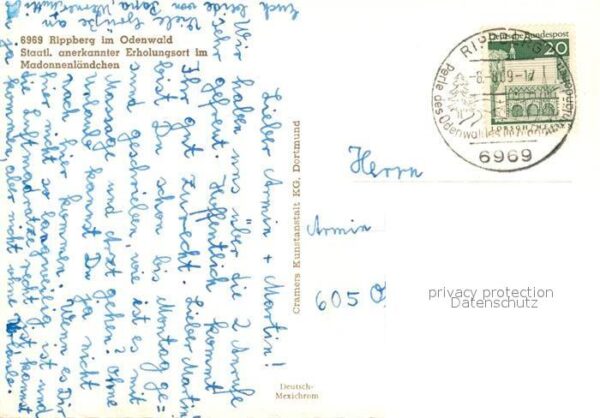 6969 Rippberg im Odenwald
Staatl. anerkannter Erholungsort im
Madonnenländchen
Lieber Armin + Martin!
Wir haben uns über die 2 Anrufe
sehr gefreut. Hoffentlich kommt
Ihr gut zurecht. Lieber Martin
bist Du noch bis Montag ge-
sund geschrieben, wie ist es mit
Massage und Arzt gehen? Ohne
Urlaub kannst Du ja nicht
nach hier kommen. Wenn es Dir
hier nicht so langweilig ist und
die Luftmadratze recht ist kannst
Du ja kommen, aber nicht ohne Urlaub.
Viele Grüße an
Euch beide von Papa,
Cramers Kunstanstalt KG. Dortmund
Deutsch-
Mexichrom
Deutsche Bundespost
20
LORSCH/HESSEN
RIPPBERG
Perle des Odenwaldes
6969
Herrn
Armin
605 O
privacy protection
Datenschutz